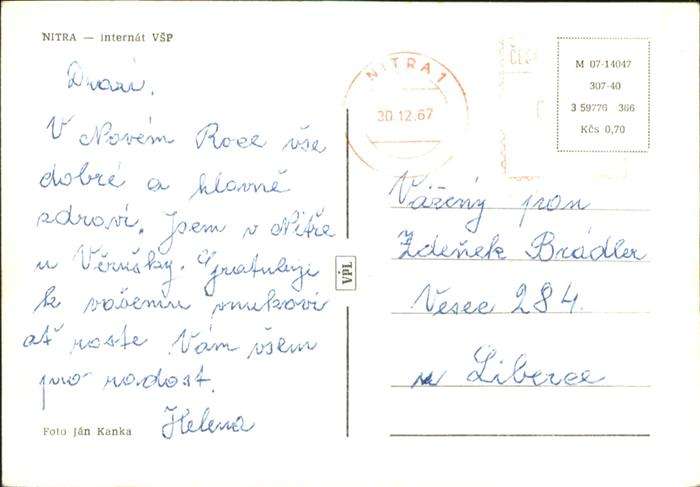 NITRA — internát VŠP
Drazí.
V Novém Roce vše
dobré a hlavně
zdraví. Jsem v Nitře
u Věrušky. Gratuluji
k vašemu vnukovi
ať roste Vám všem
pro radost.
Helena
Foto Ján Kanka
VPL
NITRA 1
30.12.67
ČES
M 07-14047
307-40
3 59776 366
Kčs 0,70
Vážený pan
Zdeněk Brádler
Vesec 284.
u Liberce